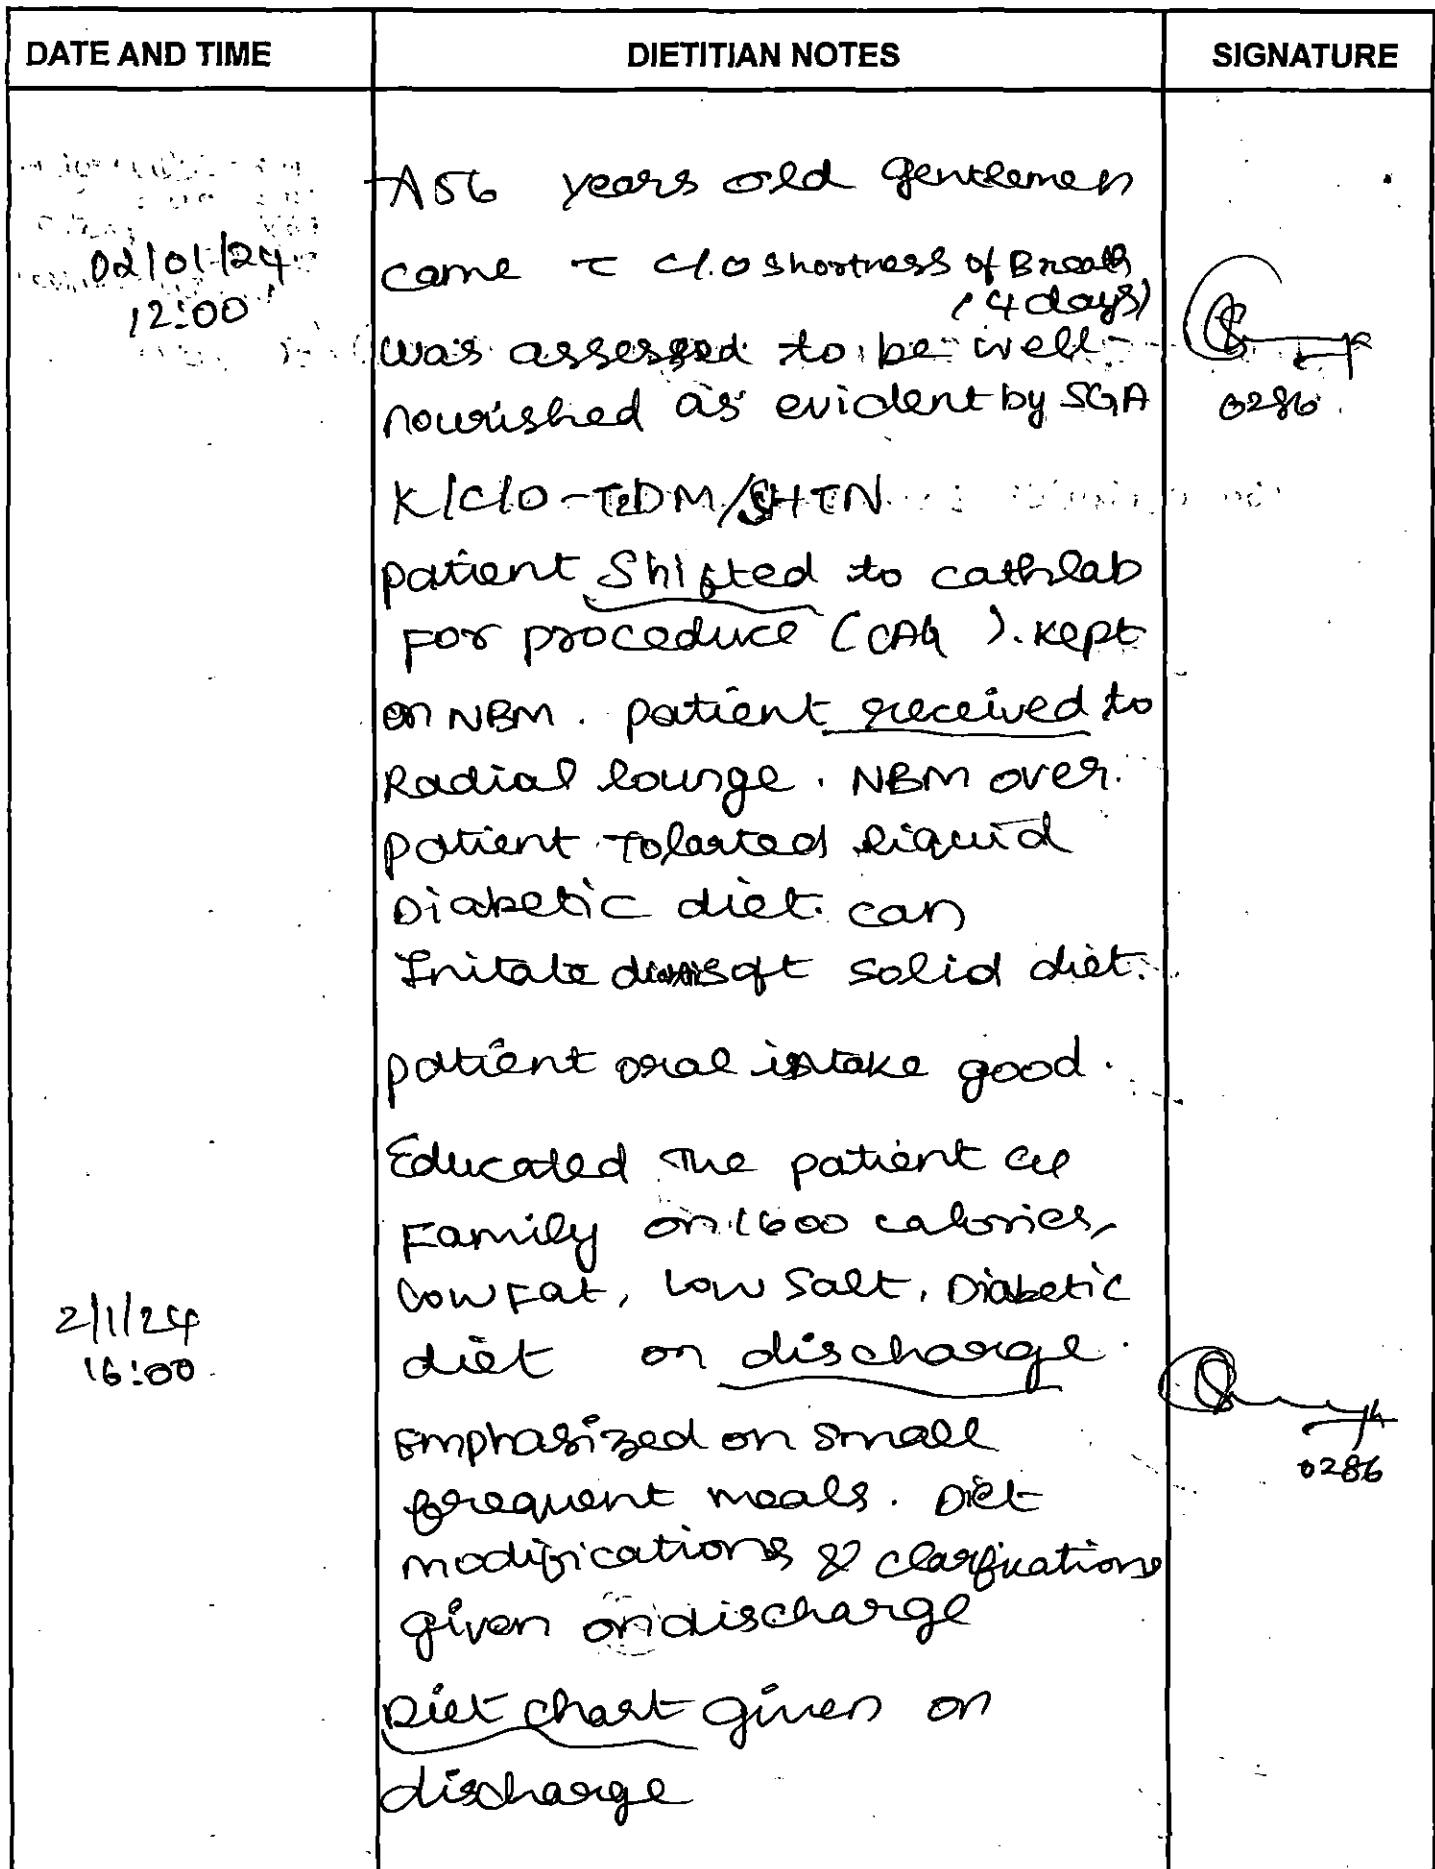 DATE AND TIME DIETITIAN NOTES SIGNATURE
A 56 years old gentlemen
02/01/24 came c̄ c/o shortness of Breath
12:00 (4 days)
was assessed to be well-
nourished as evident by SGA 0286
K/C/O - T2DM/SHTN
patient Shifted to cathlab
For proceduce (CAG). Kept
on NBM. patient received to
Radial lounge. NBM over.
patient Tolarted liquid
Diabetic diet. can
Initate soft solid diet.
patient oral intake good.
Educated The patient
Family on 1600 calories,
low Fat, low Salt, Diabetic
2/1/24
16:00 diet on discharge.
Emphasized on small
frequent meals. Diet 0286
modifications & clarfications
given on discharge
Diet chart given on
discharge